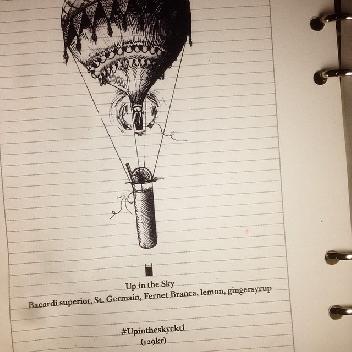 Up in the Sky
Bacardi superior, St. Germain, Fernet Branca, lemon, gingersyrup
#Upintheskyrktl
(129kr)